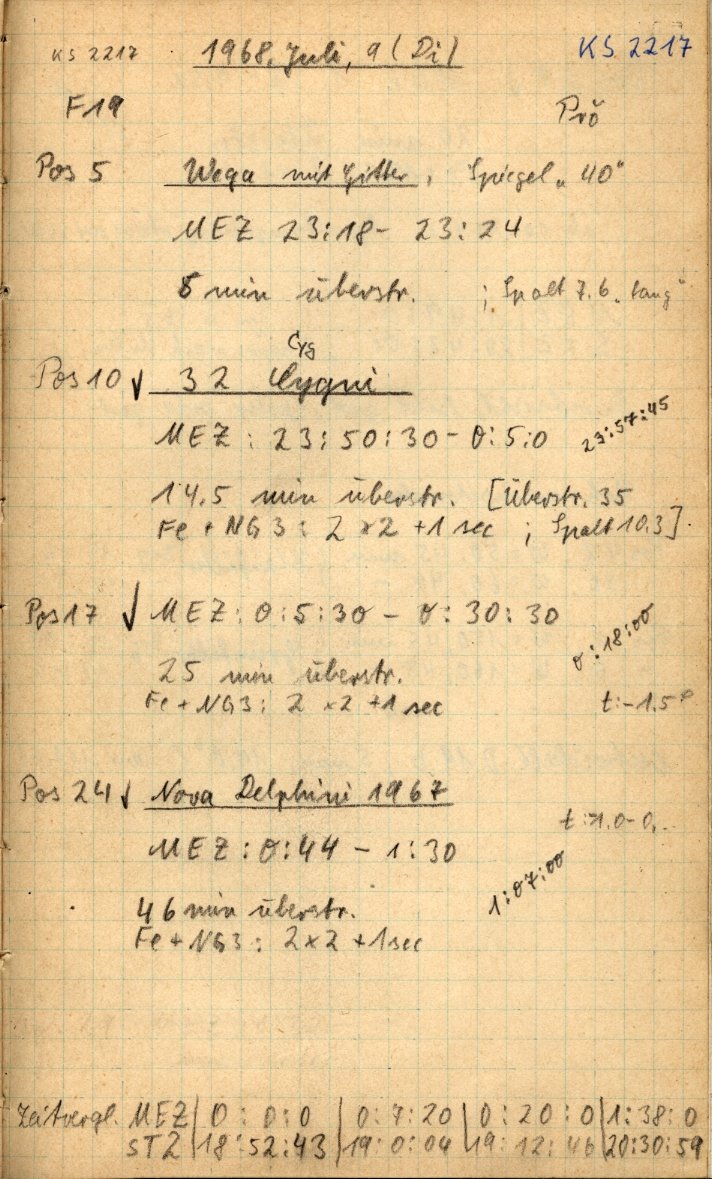 KS 2217 1968, Juli, 9 (Di) KS 2217
F19 Prö
Pos 5 Wega mit Gitter, Spiegel „40“
MEZ 23:18 - 23:24
min überstr. ; Spalt 7.6 „lang“
Cyg
Pos 10 √ 32 Cygni
MEZ: 23:50:30 - 0:5:0 23:57:45
14.5 min überstr. [Überstr. 35
Fe + NG3: 2 x 2 + 1 sec ; Spalt 10.3]
Pos 17 √ MEZ: 0:5:30 - 0:30:30
0:18:00
25 min überstr.
Fe + NG3: 2 x 2 + 1 sec t: -1.5°
Pos 24 √ Nova Delphini 1967
MEZ: 0:44 - 1:30
1:07:00
46 min überstr.
Fe + NG3: 2 x 2 + 1 sec
Zeitvergl. MEZ | 0:0:0 | 0:7:20 | 0:20:0 | 1:38:0
STZ | 18:52:43 | 19:0:04 | 19:12:46 | 20:30:59